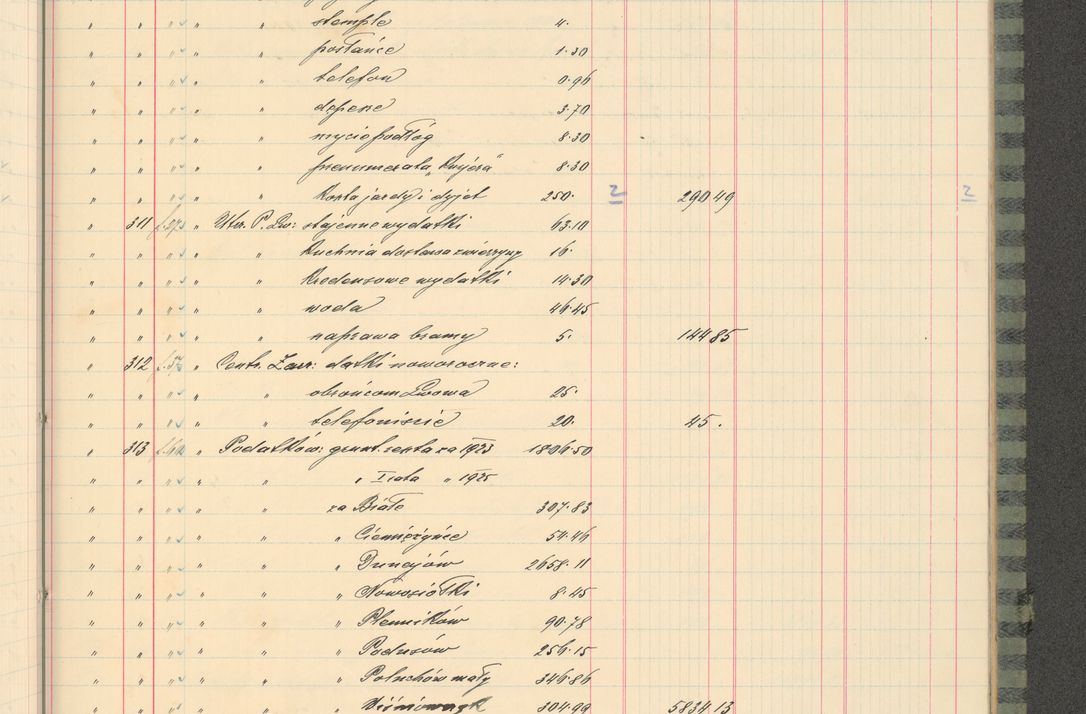 " " " " " stemple 4.
" " " " " posłańce 1.30
" " " " " telefon 0.96
" " " " " depesze 3.70
" " " " " mycie podłóg 8.30
" " " " " prenumerata „Kurjera" 8.30
" " " " " Koszta jazdy i dyjet 250. 2 290 49 2
" 311 " Utrz. P. Lw: stajenne wydatki 63.10
" " " " " Kuchnia dostawa zwierzyny 16.
" " " " " Kredensowe wydatki 14.30
" " " " " woda 46.45
" " " " " naprawa bramy 5. 144 85
" 312 " Centr. Zarz: datki noworoczne:
" " " " " obrońcom Lwowa 25.
" " " " " telefoniście 20. 45.
" 313 " Podatków: grunt. reszta za 1923 1806.50
" " " " " " I rata " 1925
" " " " " za Białe 307.83
" " " " " " Ciemierzyńce 54.46
" " " " " " Dunajów 2658.11
" " " " " " Nowosiółki 8.45
" " " " " " Plenników 90.78
" " " " " " Podusów 256.15
" " " " " " Poluchów mały 346.86
" " " " " " Wiśniowczyk 304.99 5834 13